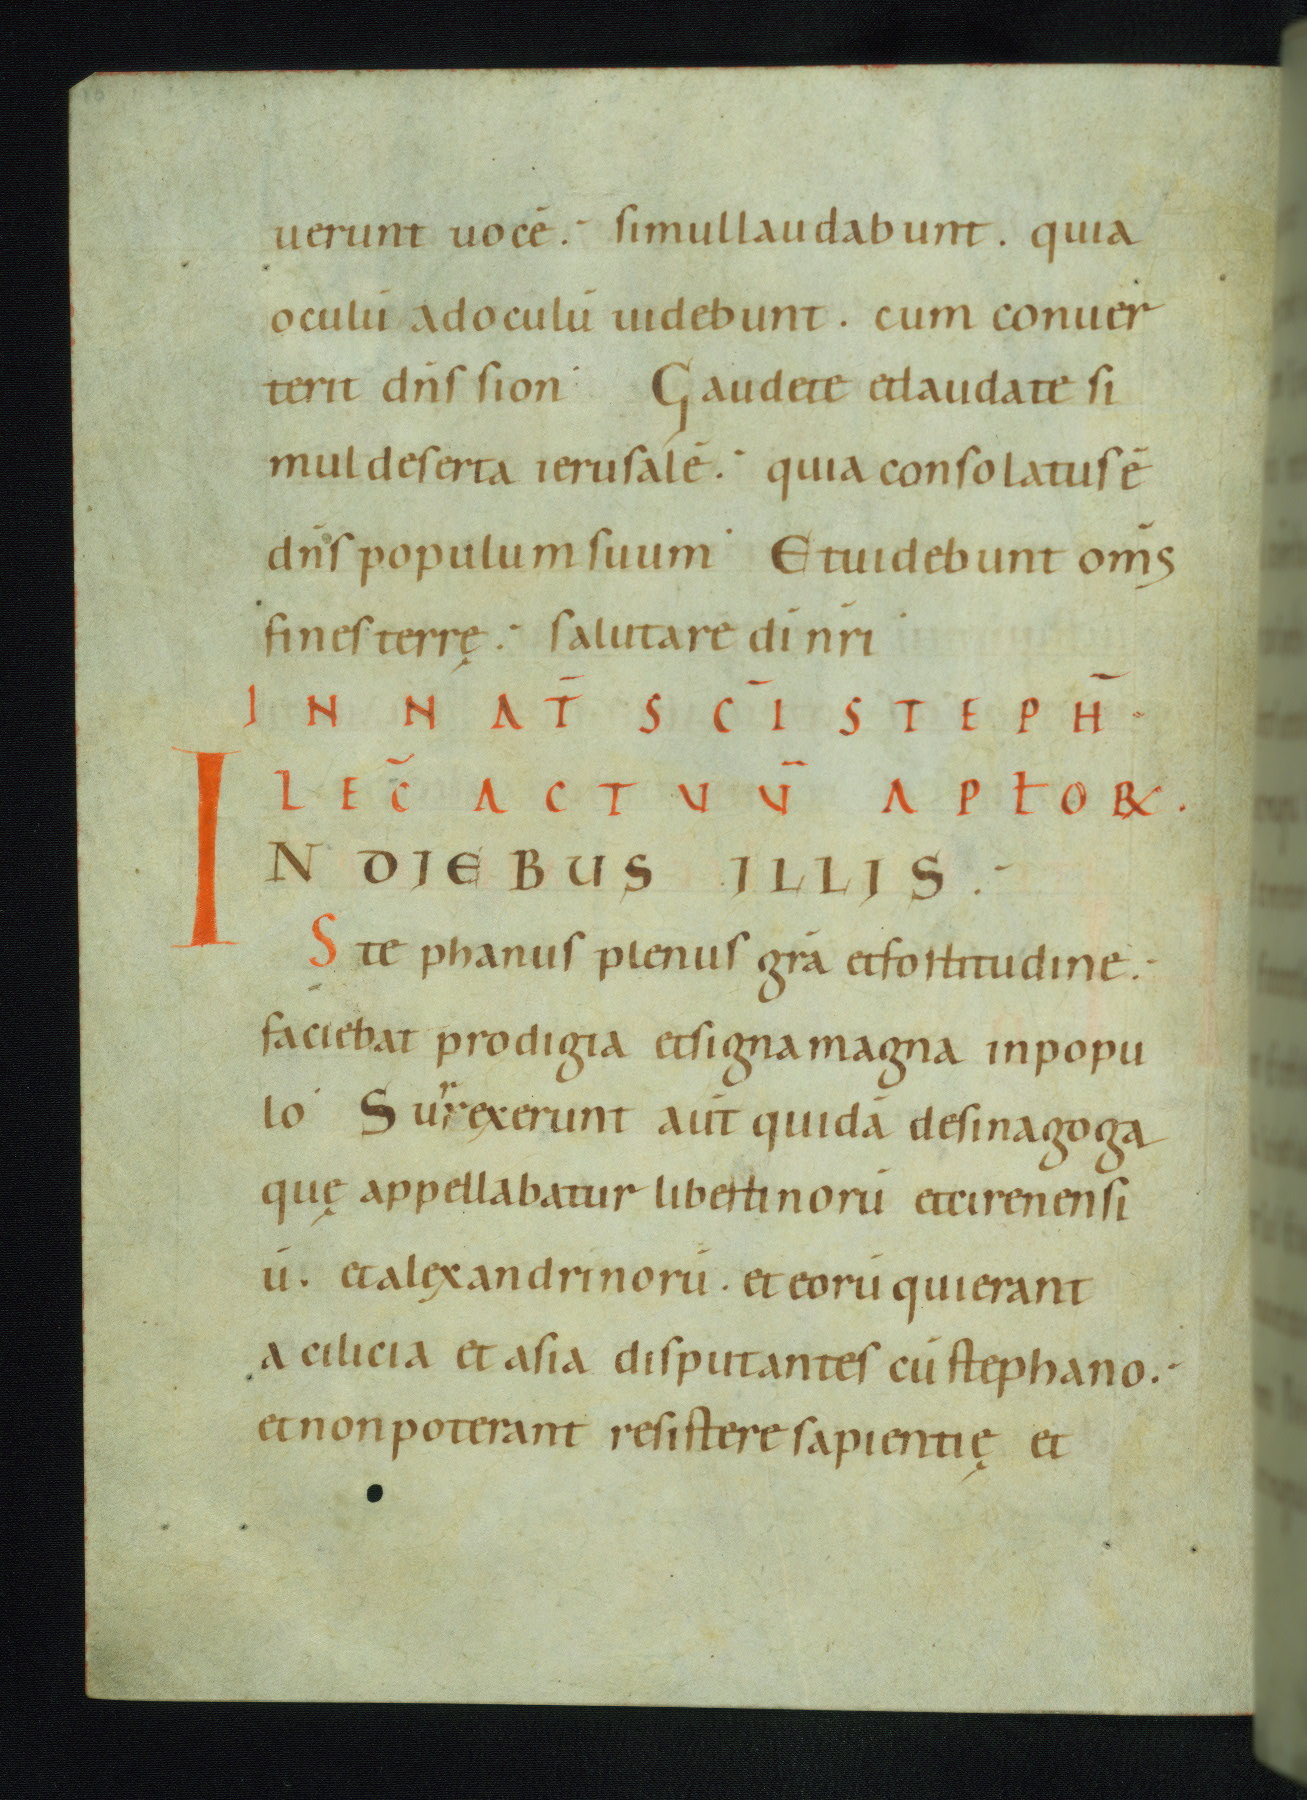 uerunt uocē. simul laudabunt. quia
oculū ad oculū uidebunt. cum conuer
terit dn̄s sion Gaudete et laudate si
mul deserta ierusalē. quia consolatus ē
dn̄s populum suum Et uidebunt om̄s
fines terrę. salutare dī nr̄i
IN NAT̄ SC̄I STEPH̄.
LEC̄ ACTUŪ APƚOꝜ.
IN DIEBUS ILLIS.
Stephanus plenus grā et fortitudine.
faciebat prodigia et signa magna in popu
lo Surrexerunt aūt quidā de sinagoga
quę appellabatur libertinorū et cirenensi
ū. et alexandrinorū. et eorū qui erant
a cilicia et asia disputantes cū stephano.
et non poterant resistere sapientię et